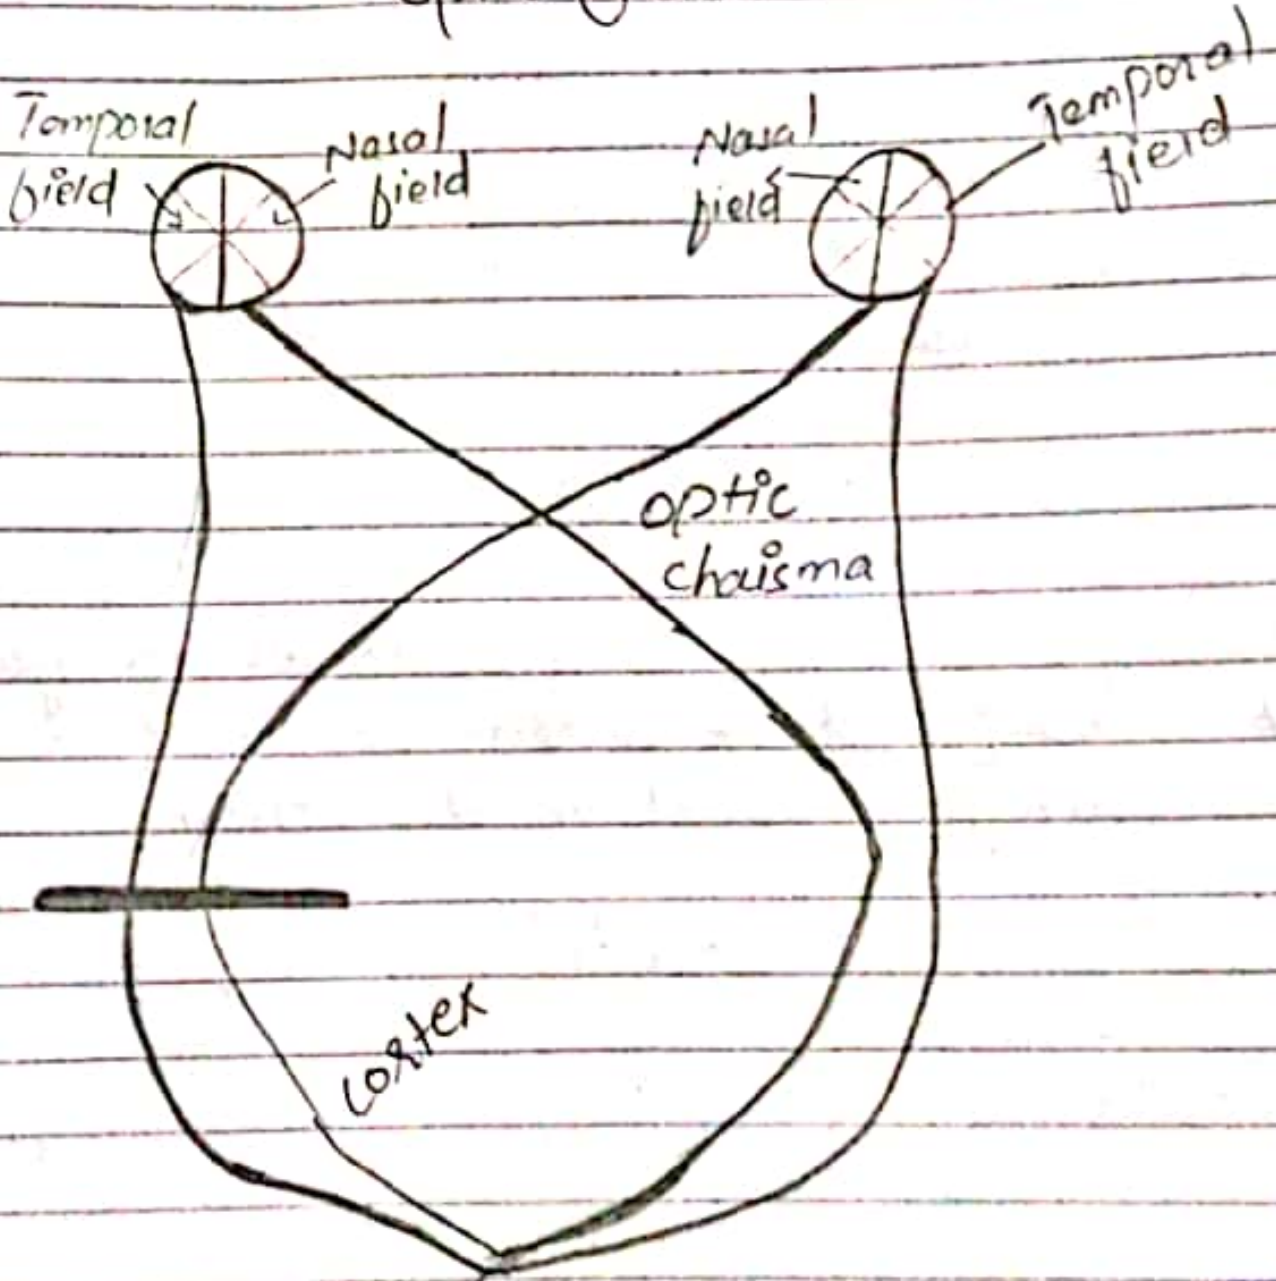 Temporal
field
Nasal
field
Nasal
field
Temporal
field
optic
chaisma
cortex